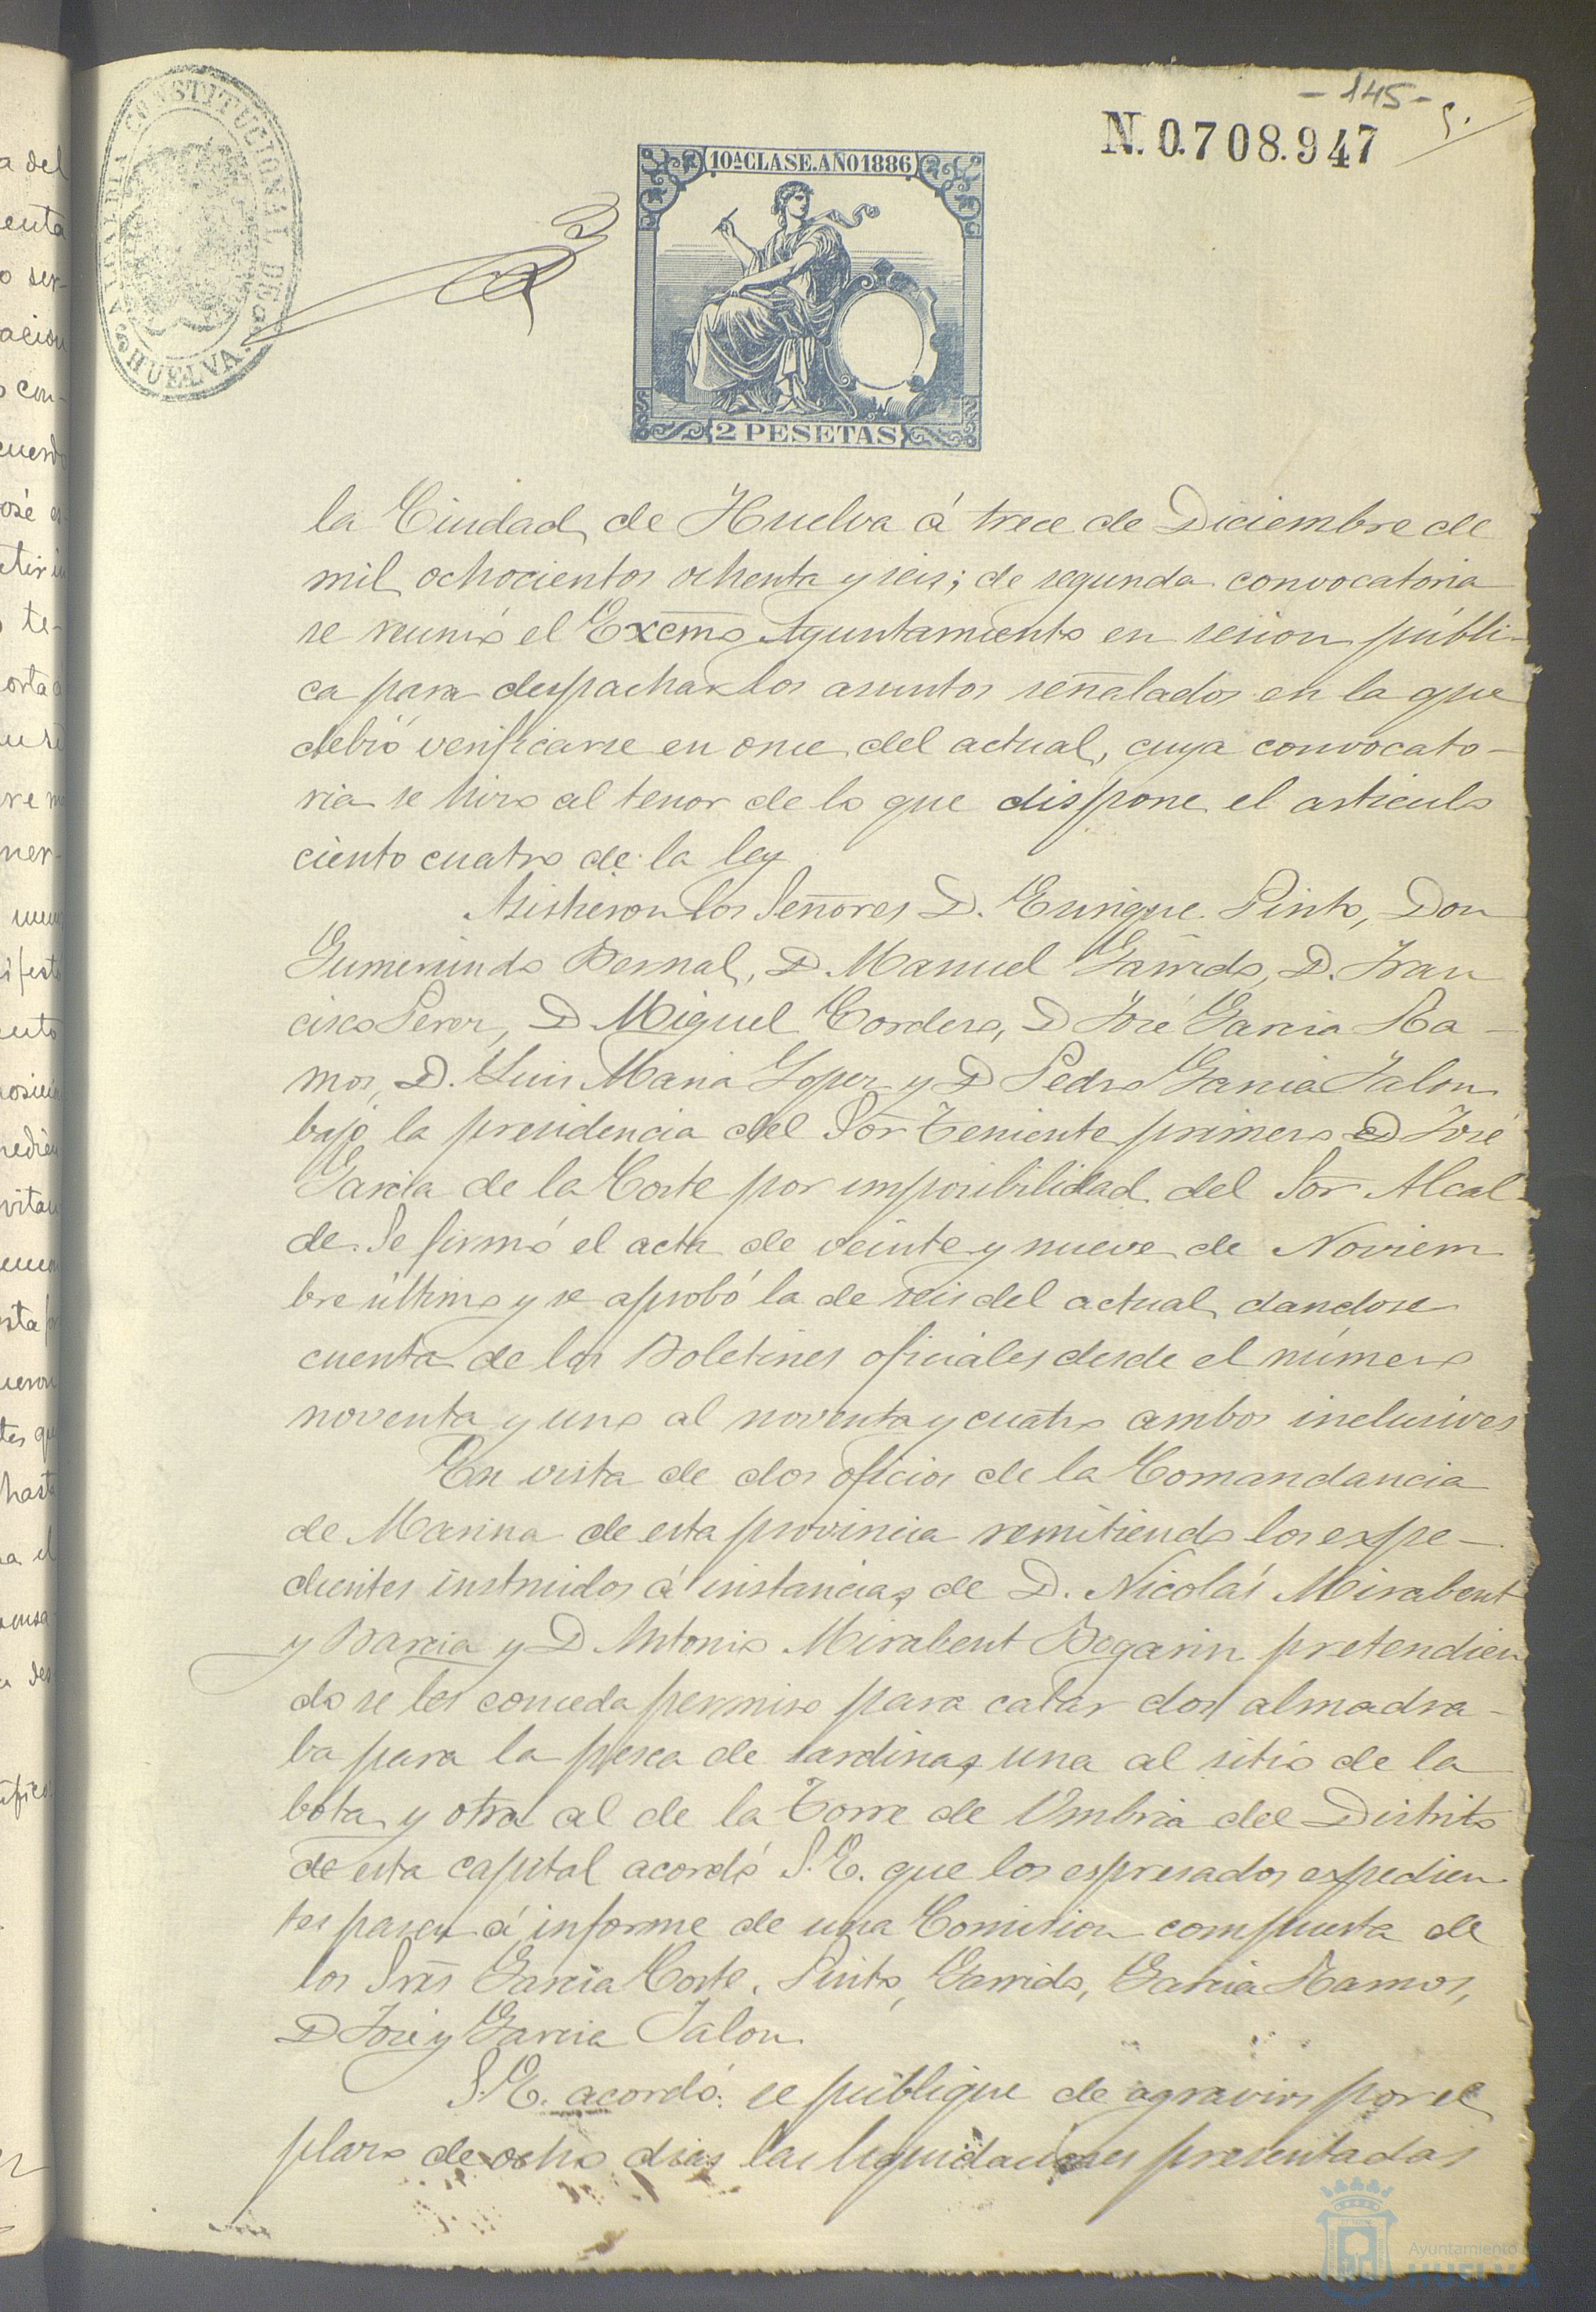 - 145 -
N. 0.708.947
ALCALDIA CONSTITUCIONAL DE HUELVA.
10ª CLASE. AÑO 1886
2 PESETAS
la Ciudad de Huelva á trece de Diciembre de
mil ochocientos ochenta y seis; de segunda convocatoria
se reunió el Excmo Ayuntamiento en sesion públi-
ca para despachar los asuntos señalados en la que
debió verificarse en once del actual, cuya convocato-
ria se hizo al tenor de lo que dispone el articulo
ciento cuatro de la ley
Asistieron los Señores D. Enrique Pinto, Don
Gumersindo Bernal, D. Manuel Garrido, D. Fran
cisco Perez, D Miguel Cordero, D José Garcia Ra-
mos, D. Luis Maria Lopez y D Pedro Garcia Jalon
bajo la presidencia del Sor Teniente primero D José
Garcia de la Corte por imposibilidad del Sor Alcal
de. Se firmó el acta de veinte y nueve de Noviem
bre último y se aprobó la de seis del actual dandose
cuenta de los Boletines oficiales desde el número
noventa y uno al noventa y cuatro ambos inclusives
En vista de dos oficios de la Comandancia
de Marina de esta provincia remitiendo los expe-
dientes instruidos á instancias de D. Nicolás Mirabent
y Barcia y D Antonio Mirabent Bogarin pretendien
do se les conceda permiso para calar dos almadra-
ba para la pesca de sardinas, una al sitio de la
bota y otra al de la Torre de Umbria del Distrito
de esta capital acordó S.E. que los espresados expedien
tes pasen á informe de una Comision compuesta de
los Sres Garcia Corte, Pinto, Garrido, Garcia Ramos,
D José y Garcia Jalon.
S.E. acordó: se publique de agravios por el
plazo de ocho dias las liquidaciones presentadas
Ayuntamiento de
HUELVA